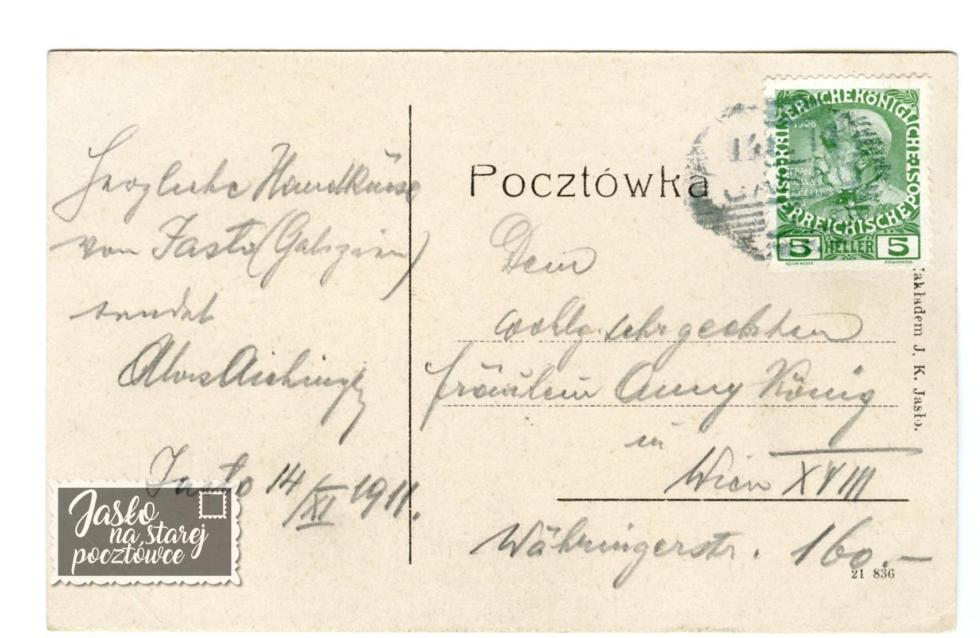 Herzliche Handküsse
von Jasło (Galizien)
sendet
Alois Aichinger
Jasło 14/XI 1911.
Jasło
na starej
pocztówce
Pocztówka
KAISERLICHE KÖNIGLICHE
ÖSTERREICHISCHE POST
1908
5 HELLER 5
Dem
wohlg. sehr geehrten
Fräulein Anny König
in
Wien XVIII
Währingerstr. 160.-
21 836
Nakładem J. K. Jasło.